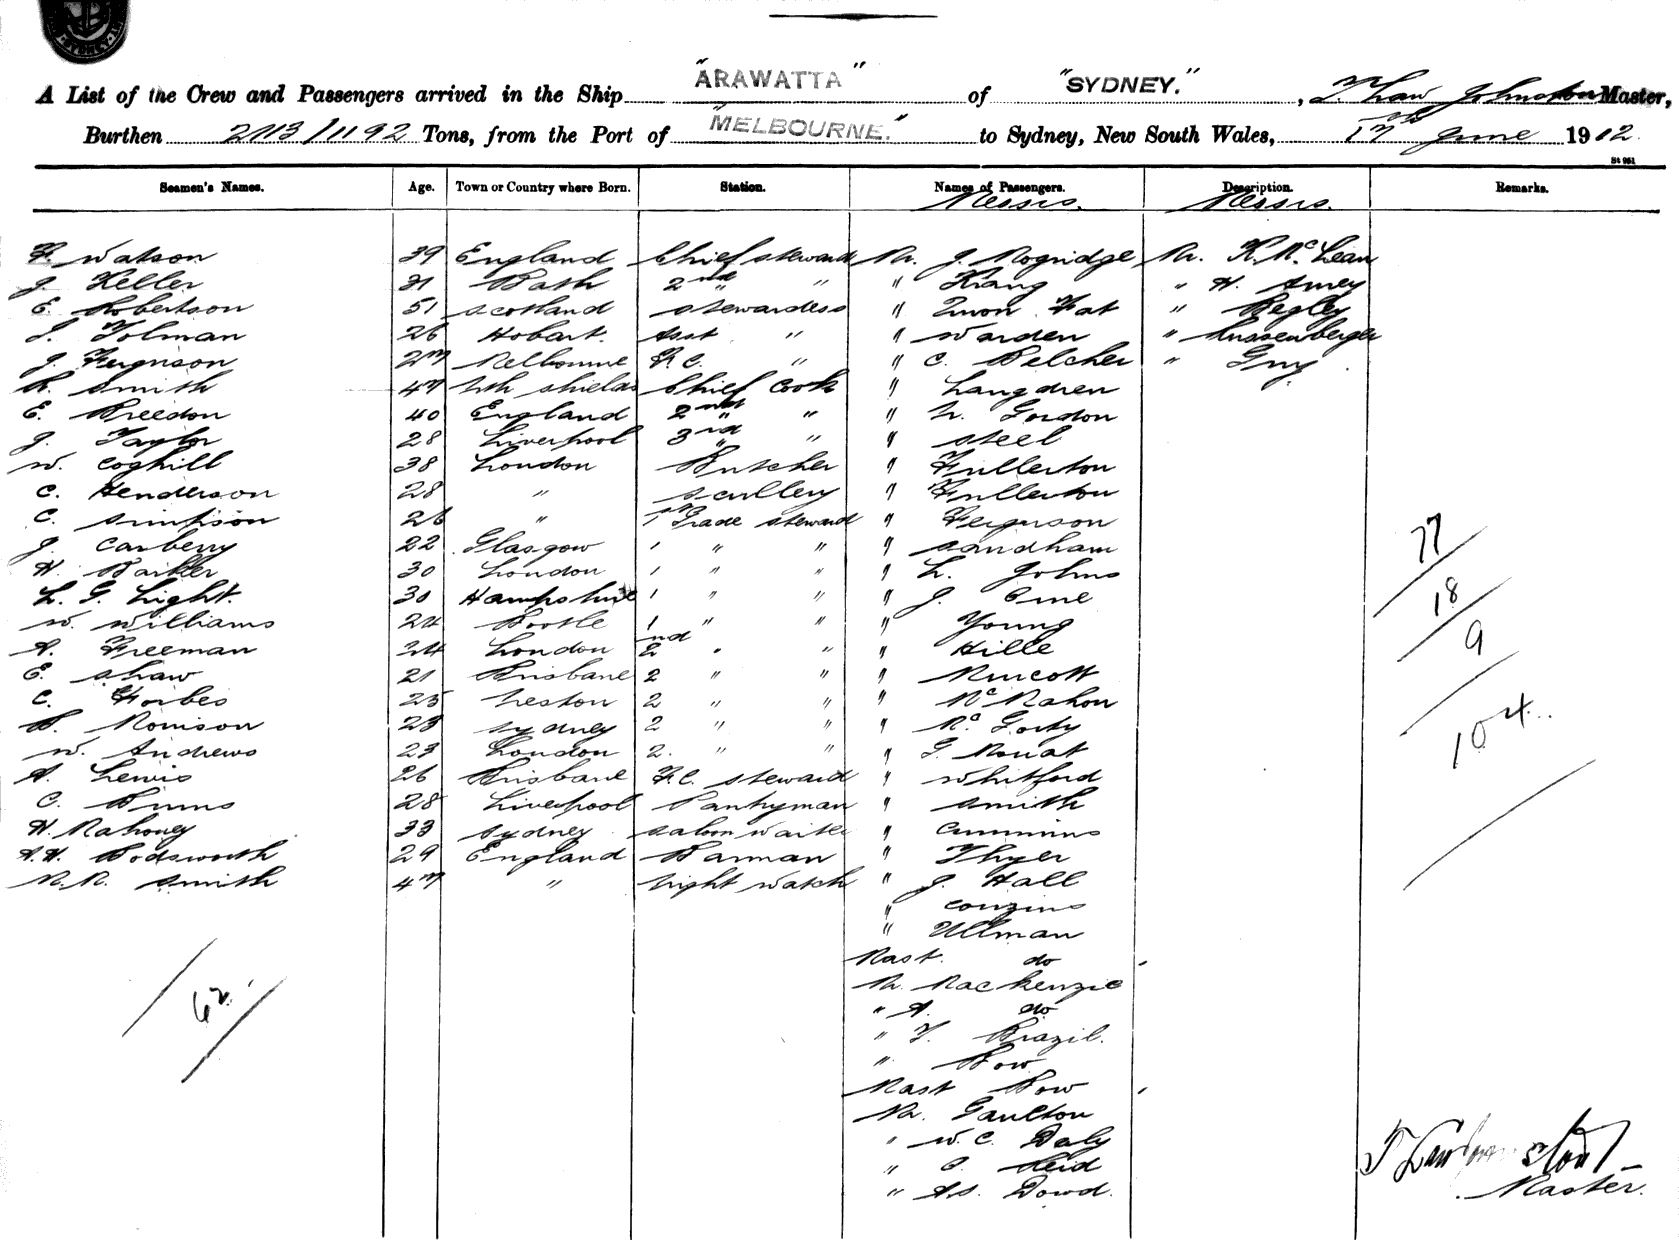 SYDNEY
A List of the Crew and Passengers arrived in the Ship "ARAWATTA" of "SYDNEY.", T. Law Johnston Master,
Burthen 2113/1192 Tons, from the Port of "MELBOURNE." to Sydney, New South Wales, 17th June 1912
St 951
Seamen's Names. Age. Town or Country where Born. Station. Names of Passengers. Description. Remarks.
Messrs. Messrs.
F. Watson 39 England Chief Steward Mr. J. Mogridge Mr. K. McLean
J. Keller 31 Bath 2nd " " " Krang " H. Amey
E. Robertson 51 Scotland Stewardess " Quon Fat " Begley
Tolman 26 Hobart. Asst " " Warden " Lussenberger
J. Ferguson 27 Melbourne F.C. " " C. Belcher " Guy
Smith 47 Nth Shields Chief Cook " Langdren
E. Breedon 40 England 2nd " " " Gordon
J. Taylor 28 Liverpool 3rd " " " Steel
W. Coghill 38 London Butcher " Fullerton
C. Henderson 28 " Scullery " Fullerton
C. Simpson 26 " 1st Grade Steward " Ferguson
J. Carberry 22 Glasgow 1 " " " Sandham
H. Barker 30 London 1 " " " L. Johns
L. G. Light. 30 Hampshire 1 " " " J. Orne
W. Williams 24 Bootle 1 " " " Young
A. Freeman 24 London 2nd " " " Hille
E. Shaw 21 Brisbane 2 " " "
C. Forbes 25 Leston 2 " " " McMahon
23 Sydney 2 " " " McGorty
W. Andrews 23 London 2. " " " Mouat
A. Lewis 26 Brisbane F.C. Steward " Whitford
C. Burns 28 Liverpool Pantryman " Smith
H. Mahoney 33 Sydney Saloon Waiter " Cummins
A.H. Bodsworth 29 England Barman " Thyer
M.M. Smith 47 " Night Watch " J. Hall
" Couzins
" Ullman
Mast. do
M. Mackenzie
" A. do
" T. Brazil.
" Bow
Mast Bow
Mr. Gaulton
" W.C. Daly
" Reid
" A.S. Dowd.
62.
77
18
9
104.
T Law Johnston
Master.